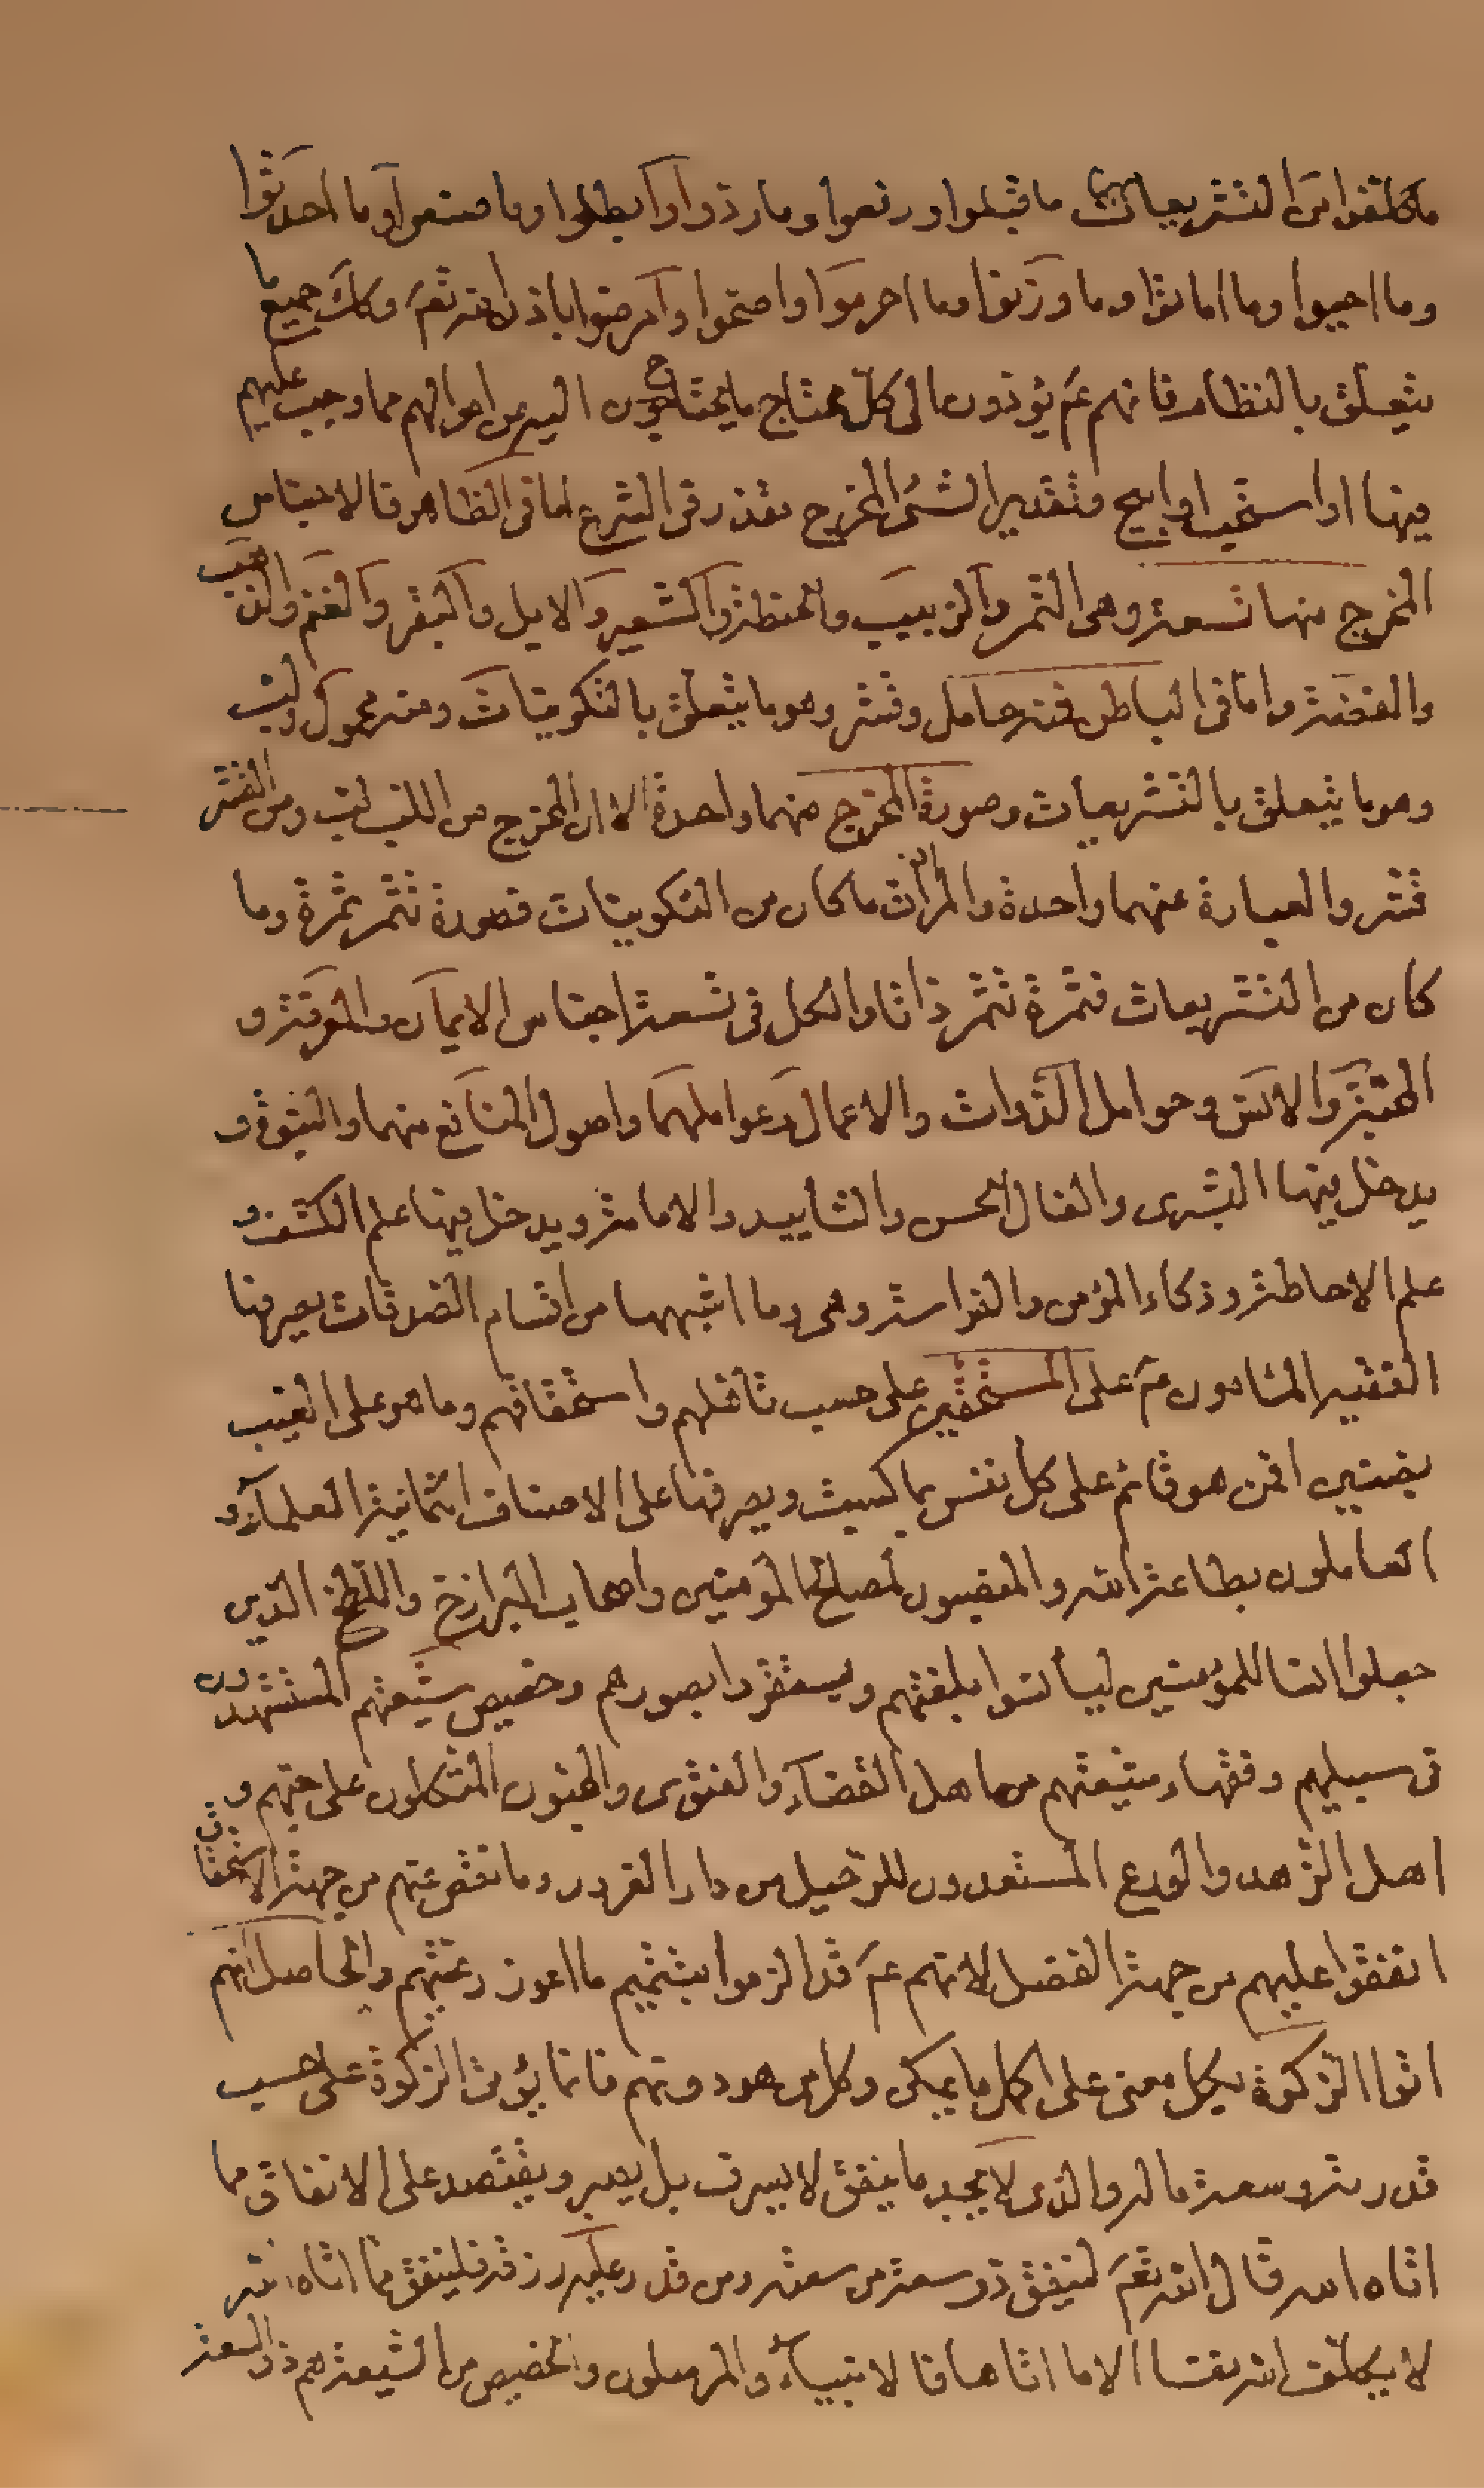 ما كلفوا من التشريعات منها ما قبلوا ورفعوا وما ردوا وابطلوا وما صنعوا وما احدثوا
وما احيوا وما اماتوا وما رزقوا وما احرموا واصحوا وامرضوا باذن الله تعم وكك جميع ما
يتعلق بالنظام فانهم عم يؤدون الى كل محتاج ما يحتاجون اليه من اموالهم مما وجب عليهم
فيها او استحب او ابيح وتقدير الشئ المخرج بقدر في الشرع اما في الظاهر فالاجناس
المخرج منها تسعة وهي التمر والزبيب والحنطة والشعير والابل والبقر والغنم والذهب
والفضة واما في الباطن فمنه حامل وقشر وهو ما يتعلق بالتكوينات ومنه محمول ولب
وهو ما يتعلق بالتشريعات وصورة المخرج منهما واحدة الا ان المخرج من اللب لب ومن القشر
قشر والعبارة عنهما واحدة والمراد ان ما كان من التكوينات فصورة تثمر ثمرة وما
كان من التشريعات فثمرة تثمر ذاتا والكل في تسعة اجناس الايمان والمعرفة و
الهيبة والانس وحوامل الذوات والاعمال وعواملهما واصول المنافع منهما والنبوة و
يدخل فيها البشرى والفال الحسن والتأييد والامامة ويدخل فيها علم الكشف و
علم الاحاطة وذكاء المؤمن والفراسة وهي وما اشبهها من اقسام الصدقات يصرفها
الفقير المشاهدون عم على المستحقين على حسب تأهلهم واستحقاقهم وما هو على الغيب
بضنين افمن هو قائم على كل نفس بما كسبت ويصرفها على الاصناف الثمانية العلماء و
العاملون بطاعة الله والمقيمون لمصالح المؤمنين واصحاب البرازخ واللطخ الذين
جعلوا انسا للمؤمنين ليأنسوا بلغتهم ويستقروا بصورهم وخصيص شيعتهم المستشهدون
في سبيلهم وفقهاء شيعتهم من اهل القضاء والفتوى والمحبون المتكلون على حبهم و
اهل الزهد والورع المستعدون للرحيل من دار الغرور وما نقص عنهم من جهة الاستحقاق
انفقوا عليهم من جهة الفضل لانهم عم قد الزموا بتتميم ما اعوز رعيتهم والحاصل انهم
اتوا الزكوة بكل معنى على اكمل ما يمكن وكل من هو دونهم فانما يؤتى الزكوة على حسب
قدرته وسعة ماله والذي لا يجد ما ينفق لا يسرف بل يصبر ويقتصد على الانفاق مما
اتاه الله قال الله تعم لينفق ذو سعة من سعته ومن قدر عليه رزقه فلينفق مما اتاه الله
لا يكلف الله نفسا الا ما اتاها فالانبياء والمرسلون والخصيص من الشيعة هم ذو السعة